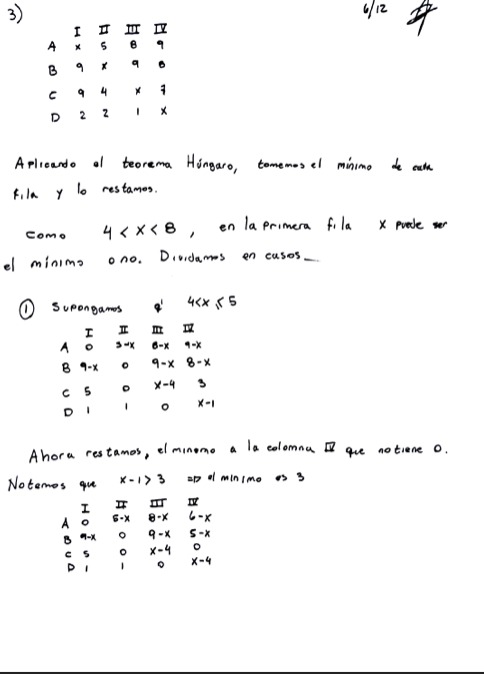 3) 6/12
I II III IV
A x 5 8 9
B 9 x 9 8
C 9 4 x 7
D 2 2 1 x
Aplicando el teorema Húngaro, tomemos el mínimo de cada
fila y lo restamos.
Como 4 < x < 8, en la primera fila x puede ser
el mínimo o no. Dividamos en casos
① Supongamos q' 4<x≤5
I II III IV
A 0 5-x 8-x 9-x
B 9-x 0 9-x 8-x
C 5 0 x-4 3
D 1 1 0 x-1
Ahora restamos, el minemo a la colomna IV que no tiene 0.
Notemos que x-1>3 ⇒ el minimo es 3
I II III IV
A 0 5-x 8-x 6-x
B 9-x 0 9-x 5-x
C 5 0 x-4 0
D 1 1 0 x-4